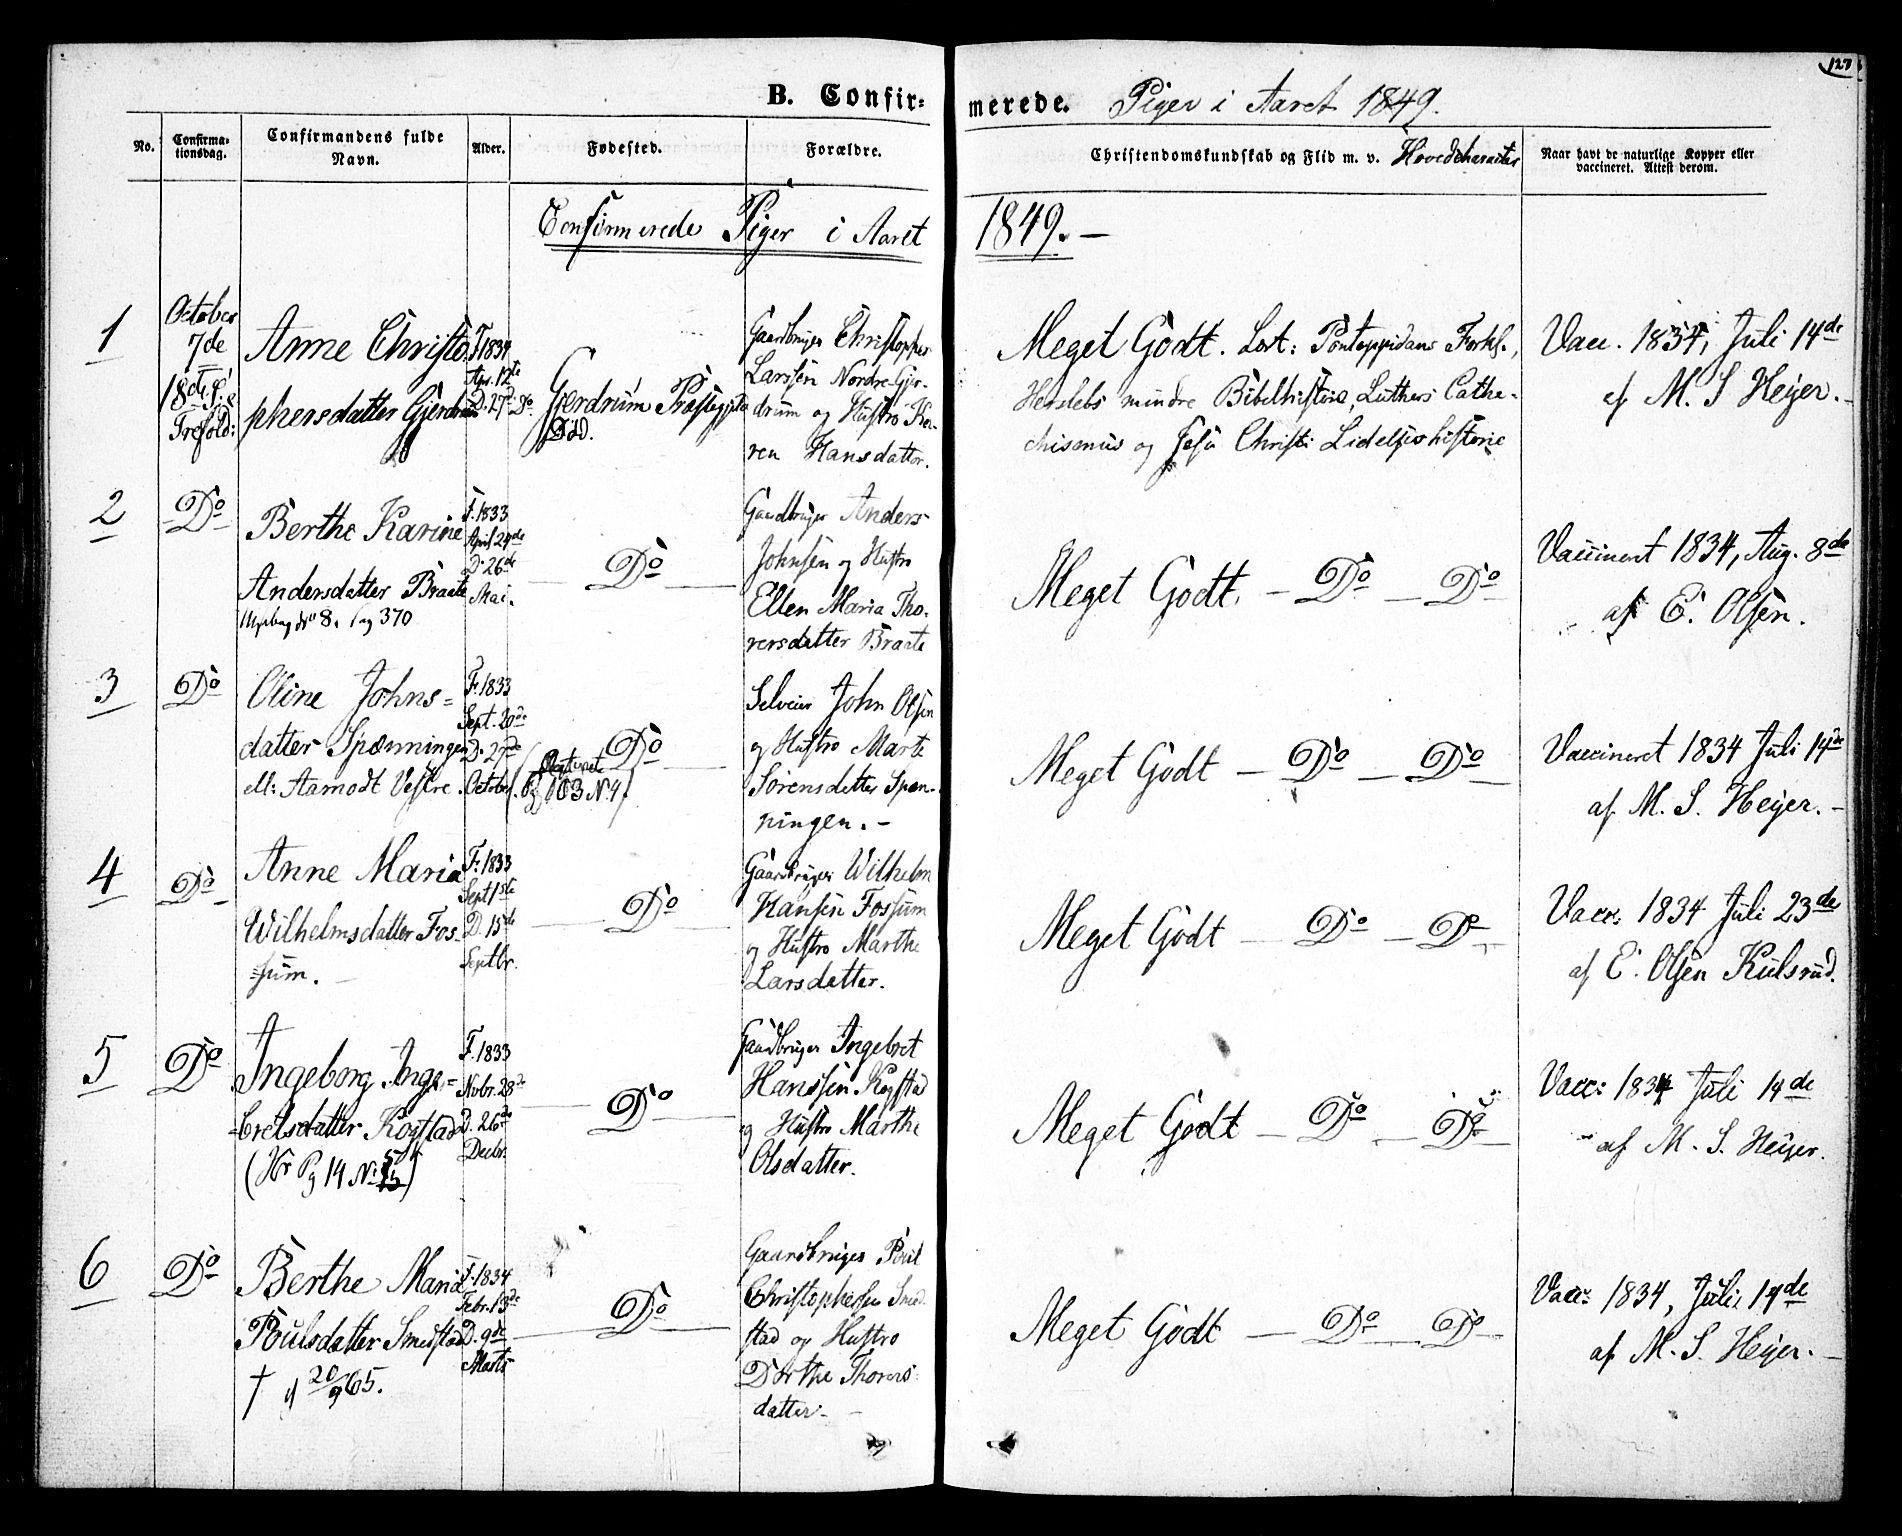 127
B. Confir-
merede. Piger i Aaret 1849.
No.
Confirma-
tionsdag.
Confirmandens fulde
Navn.
Alder.
Fødested.
Forældre.
Christendomskundskab og Flid m. v. Hovedcharacter
Naar havt de naturlige Kopper eller
vaccineret. Attest derom.
Confirmerede Piger i Aaret
1849. —
1
October
7de
18de S. e.
Trefold:
Anne Christo-
phersdatter Gjerdrum
F. 1834
Apr. 12te
D. 27de Do
Gjerdrum Præstegjeld
Gaardbruger Christopher
Larssen Nordre Gjer-
drum og Hustro Ka-
ren Hansdatter.
Meget Godt. Læst: Pontoppidans Forkl.,
Herslebs mindre Bibelhistorie, Luthers Cathe-
chismus og Jesu Christi Lidelseshistorie
Vacc. 1834, Juli 14de
af M. S Heyer. -
2
Do
Berthe Karine
Andersdatter Braate
No 8. pag 370
F. 1833
April 24de
D. 26de
Mai.
Do
Gaardbruger Anders
Johnsen og Hustro
Ellen Maria Tho-
rersdatter Braate
Meget Godt. - Do - Do
Vaccineret 1834, Aug. 8de
af E. Olsen.
3
Do
Oline Johns-
datter Spænningen
ell: Aamodt Vestre.
F. 1833
Sept. 20de
D. 27de
Octobr.
Do
(
Pg 103 N 4)
Selveier John Olsen
og Hustro Marte
Sørensdatter Spæn-
ningen. -
Meget Godt - Do - Do
Vaccineret 1834 Juli 14de
af M. S. Heyer. -
4
Do
Anne Maria
Wilhelmsdatter Fos-
sum.
F. 1833
Sept 1ste
D. 15de
Septbr.
Do
Gaardbruger Wilhelm
Hansen Fossum
og Hustro Marthe
Larsdatter.
Meget Godt - Do - Do
Vacc: 1834 Juli 23de
af E. Olsen Kulsrud.
5
Do
Ingeborg Inge-
bretsdatter Kogstad
(Nr Pg 14 N: 15)
F. 1833
Novbr. 28de
D. 26de
Decbr.
Do
Gaardbruger Ingebret
Hanssen Kogstad
og Hustro Marthe
Olsdatter.
Meget Godt - Do - Do
Vacc: 1834 Juli 14de
af M. S. Heyer.
6
Do
Berthe Maria
Poulsdatter Smedstad
† d 20/9 65.
F. 1834
Febr. 13de
D. 9de
Marts
Do
Gaardbruger Poul
Christophersen Smed-
stad og Hustro
Dorthe Thorers-
datter -
Meget Godt - Do - Do
Vacc: 1834, Juli 14de
af M. S. Heyer. -